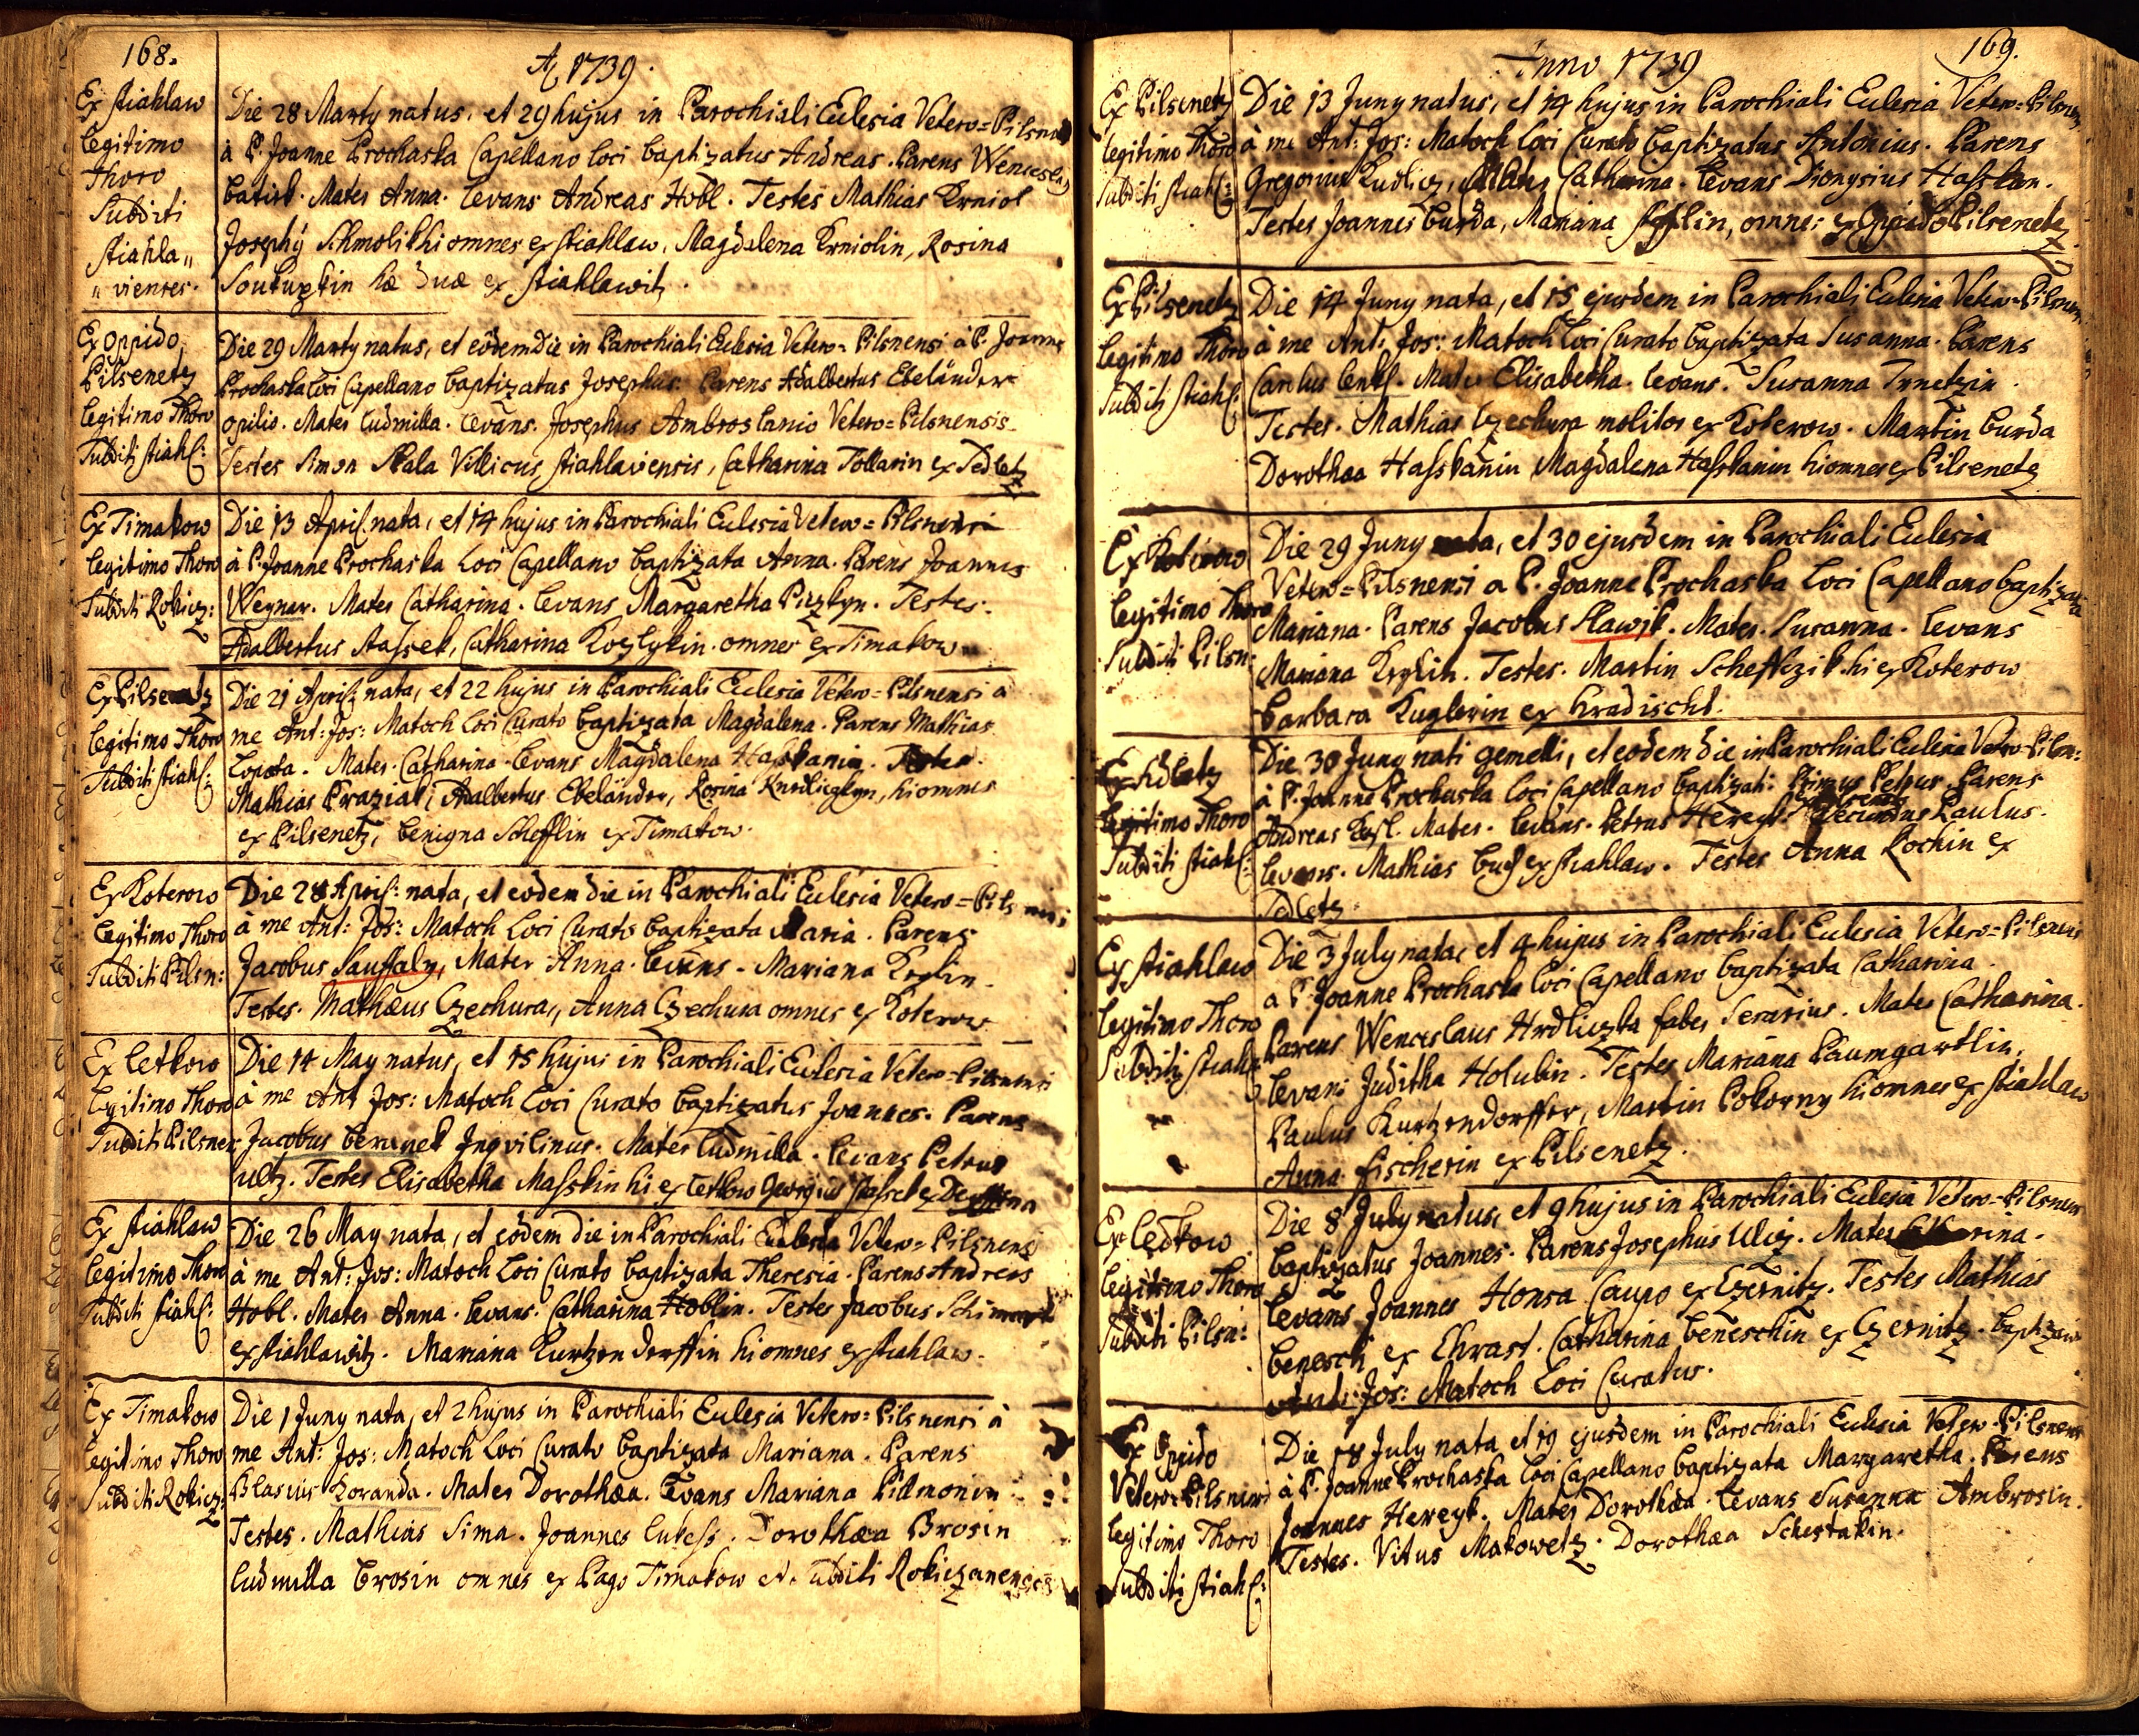 168.
A 1739.
Ex Stiahlaw
Legitimo
Thoro
Subditi
Stiahla"
"vienses.
Die 28 Marty natus, et 29 hujus in Parochiali Eclesia Vetero=Pilsnensi
à P. Joanne Prochaska Capellano Loci baptizatus Andreas. Parens Wenceslaus
Mater Anna. Levans Andreas Hobl. Testes Mathias Krniol
Josephy Schmolik hi omnes ex Stiahlaw, Magdalena Krniolin, Rosina
hæ duæ ex Stiahlawitz.
Ex Oppido
Pilsenetz
Legitimo Thoro
Subditi Stiahl:
Die 29 Marty natus, et eôdem Die in Parochiali Eclesia Vetero=Pilsnensi à P. Joanne
Prochaska Loci Capellano baptizatus Josephus. Parens Adalbertus Ebeländer
opilio. Mater Ludmilla. Levans. Josephus Ambros lanio Vetero=Pilsnensis
Testes Simon Skala Villicus Stiahlaviensis, Catharina Tollarin ex Sedletz
Ex Timakow
Legitimo Thoro
Subditi Rokicz:
Die 13 April. nata, et 14 hujus in Parochiali Eclesia Vetero=Pilsnensi
à P. Joanne Prochaska Loci Capellano baptizata Anna. Parens Joannes
Weynar. Mater Catharina. Levans Margaretha. Testes.
Adalbertus Stassek, Catharina Kozlykin. omnes ex Timakow
Ex Pilsenetz
Legitimo Thoro
Subditi Stiahl:
Die 21 April. nata, et 22 hujus in Parochiali Eclesia Vetero=Pilsnensi à
me Ant: Jos: Matoch Loci Curato baptizata Magdalena. Parens Mathias
Lopata. Mater. Catharina. Levans Magdalena Hasskanin. Testes.
Mathias Praziak, Adalbertus Ebeländer, Rosina hi omnes
ex Pilsenetz, Benigna Schefflin ex Timakow.
Ex Koterow
Legitimo Thoro
Subditi Pilsn:
Die 28 April: nata, et eôdem die in Parochiali Eclesia Vetero=Pilsnensi
à me Ant: Jos: Matoch Loci Curato baptizata Maria. Parens
Jacobus Sauffaly, Mater Anna. Levans. Mariana Krzlin.
Testes. Mathæus Czechura, Anna Czechura omnes ex Koterow
Ex Letkow
Legitimo Thoro
Subditi Pilsnen
Die 14 May natus, et 15 hujus in Parochiali Eclesia Vetero=Pilsnensi
à me Ant Jos: Matoch Loci Curato baptizatus Joannes. Parens
Jacobus Beranek Inqvilinus. Mater Ludmilla. Levans Petrus
Ulcz. Testes Elisabetha Masskin hi ex Letkow Georgius Stassek ex
Ex Stiahlaw
Legitimo Thoro
Subditi Stiahl:
Die 26 May nata, et eôdem die in Parochiali Eclesia Vetero=Pilsnensi
à me Ant: Jos: Matoch Loci Curato baptizata Theresia. Parens Andreas
Hobl. Mater Anna. Levans. Catharina Hoblin. Testes Jacobus
ex Stiahlawitz. Mariana Kurtzendorffin hi omnes ex Stiahlaw.
Ex Timakow
Legitimo Thoro
Subditi Rokicz:
Die 1 Juny nata, et 2 hujus in Parochiali Eclesia Vetero=Pilsnensi à
me Ant: Jos: Matoch Loci Curato baptizata Mariana. Parens
Blasius Koranda. Mater Dorothæa. Levans Mariana
Testes. Mathias Sima. Joannes Lukess. Dorothæa Brosin
Ludmilla Brosin omnes ex Pago Timakow et Subditi Rokiczanenses
169.
Anno 1739
Ex Pilsenetz
Legitimo Thoro
Subditi Stiahl:
Die 13 Juny natus, et 14 hujus in Parochiali Eclesia Vetero=Pilsnensi
à me Ant: Jos: Matoch Loci Curato baptizatus Antonius. Parens
Gregorius Kudlicz, Mater Catharina. Levans Dionysius Hasskan.
Testes Joannes Burda, Mariana omnes ex Oppido Pilsenetz
Ex Pilsenetz
Legitimo Thoro
Subditi Stiahl:
Die 14 Juny nata, et 15 ejusdem in Parochiali Eclesia Vetero=Pilsnen.
à me Ant: Jos: Matoch Loci Curato baptizata Susanna. Parens
Carolus Mater Elisabetha. Levans. Susanna
Testes. Mathias Czechura molitor ex Koterow. Martin Burda
Dorothæa Hasskanin Magdalena Hasskanin hi omnes ex Pilsenetz
Ex Koterow
Legitimo Thoro
Subditi Pilsn:
Die 29 Juny nata, et 30 ejusdem in Parochiali Eclesia
Vetero=Pilsnensi a P. Joanne Prochaska Loci Capellano baptizata
Mariana. Parens Jacobus Slawik. Mater. Susanna. Levans
Mariana Krzlin. Testes. Martin Scheffczik. hi ex Koterow
Barbara Kuglerin ex Hradischt.
Ex Sedletz
Legitimo Thoro
Subditi Stiahl:
Die 30 Juny nati gemelli, et eodem die in Parochiali Eclesia Vetero=Pilsn:
à P. Joanne Prochaska Loci Capellano baptizati. Primus Petrus. Parens
Andreas Mater. Levans. Petrus Hereyk Secundus Paulus.
Levans. Mathias ex Stiahlaw. Testes Anna Kochin ex
Sedletz
Ex Stiahlaw
Legitimo Thoro
Subditi Stiahl
Die 3 July nata, et 4 hujus in Parochiali Eclesia Vetero=Pilsnensi
a P. Joanne Prochaska Loci Capellano baptizata Catharina.
Parens Wenceslaus Hrdliczka faber Serarius. Mater Catharina.
Levans Juditha Holubin. Testes Mariana Paumgartlin,
Paulus Kurtzendorffer, Martin Pokorny hi omnes ex Stiahlaw
Anna Fischerin ex Pilsenetz.
Ex Ledkow
Legitimo Thoro
Subditi Pilsn:
Die 8 July natus, et 9 hujus in Parochiali Eclesia Vetero=Pilsnen
baptizatus Joannes. Parens Josephus Ulcz. Mater Catharina.
Levans Joannes Honsa Caupo ex Czernitz. Testes Mathias
Benesch ex Chrast. Catharina Beneschin ex Czernitz. baptizavit
Ant: Jos: Matoch Loci Curatus.
Ex Oppido
Vetero=Pilsnensi
Legitimo Thoro
Subditi Stiahl:
Die 18 July nata, et 19 ejusdem in Parochiali Eclesia Vetero=Pilsnens
à P. Joanne Prochaska Loci Capellano baptizata Margaretha. Parens
Joannes Hereyk. Mater Dorothæa. Levans Susanna Ambrosin.
Testes. Vitus Makowetz. Dorothæa Schestakin.